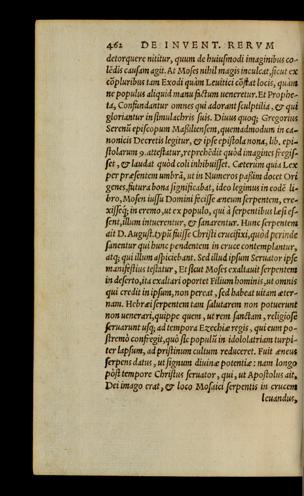 462 DE INVENT. RERVM
detorquere nititur, quum de huiusmodi imaginibus co-
lēdis causam agit. At Moses nihil magis inculcat, sicut ex
cōpluribus tam Exodi quàm Leuitici cōstat locis, quàm
ne populus aliquid manu factum ueneretur. Et Prophe-
ta, Confundantur omnes qui adorant sculptilia, & qui
gloriantur in simulachris suis. Diuus quoq; Gregorius
Serenū episcopum Massiliensem, quemadmodum in ca-
nonicis Decretis legitur, & ipse epistola nona, lib. epi-
stolarum 9. attestatur, reprehēdit quòd imagines fregis-
set, & laudat quòd coli inhibuisset. Cæterum quia Lex
per præsentem umbrā, ut in Numeros passim docet Ori
genes, futura bona significabat, ideo legimus in eodē li-
bro, Mosen iussu Domini fecisse æneum serpentem, ere-
xisseq; in eremo, ut ex populo, qui à serpentibus læsi es-
sent, illum intuerentur, & sanarentur. Hunc serpentem
ait D. August. typū fuisse Christi crucifixi, quòd perinde
sanentur qui hunc pendentem in cruce contemplantur,
atq; qui illum aspiciebant. Sed illud ipsum Seruator ipse
manifestius testatur, Et sicut Moses exaltauit serpentem
in deserto, ita exaltari oportet Filium hominis, ut omnis
qui credit in ipsum, non pereat, sed habeat uitam æter-
nam. Hebræi serpentem tam salutarem non potuerunt
non uenerari, quippe quem, ut rem sanctam, religiosè
seruarunt usq; ad tempora Ezechiæ regis, qui eum po-
stremò confregit, quò sic populū in idololatriam turpi-
ter lapsum, ad pristinum cultum reduceret. Fuit æneus
serpens datus, ut signum diuinæ potentiæ: nam longo
pòst tempore Christus seruator, qui, ut Apostolus ait,
Dei imago erat, & loco Mosaici serpentis in crucem
leuandus,